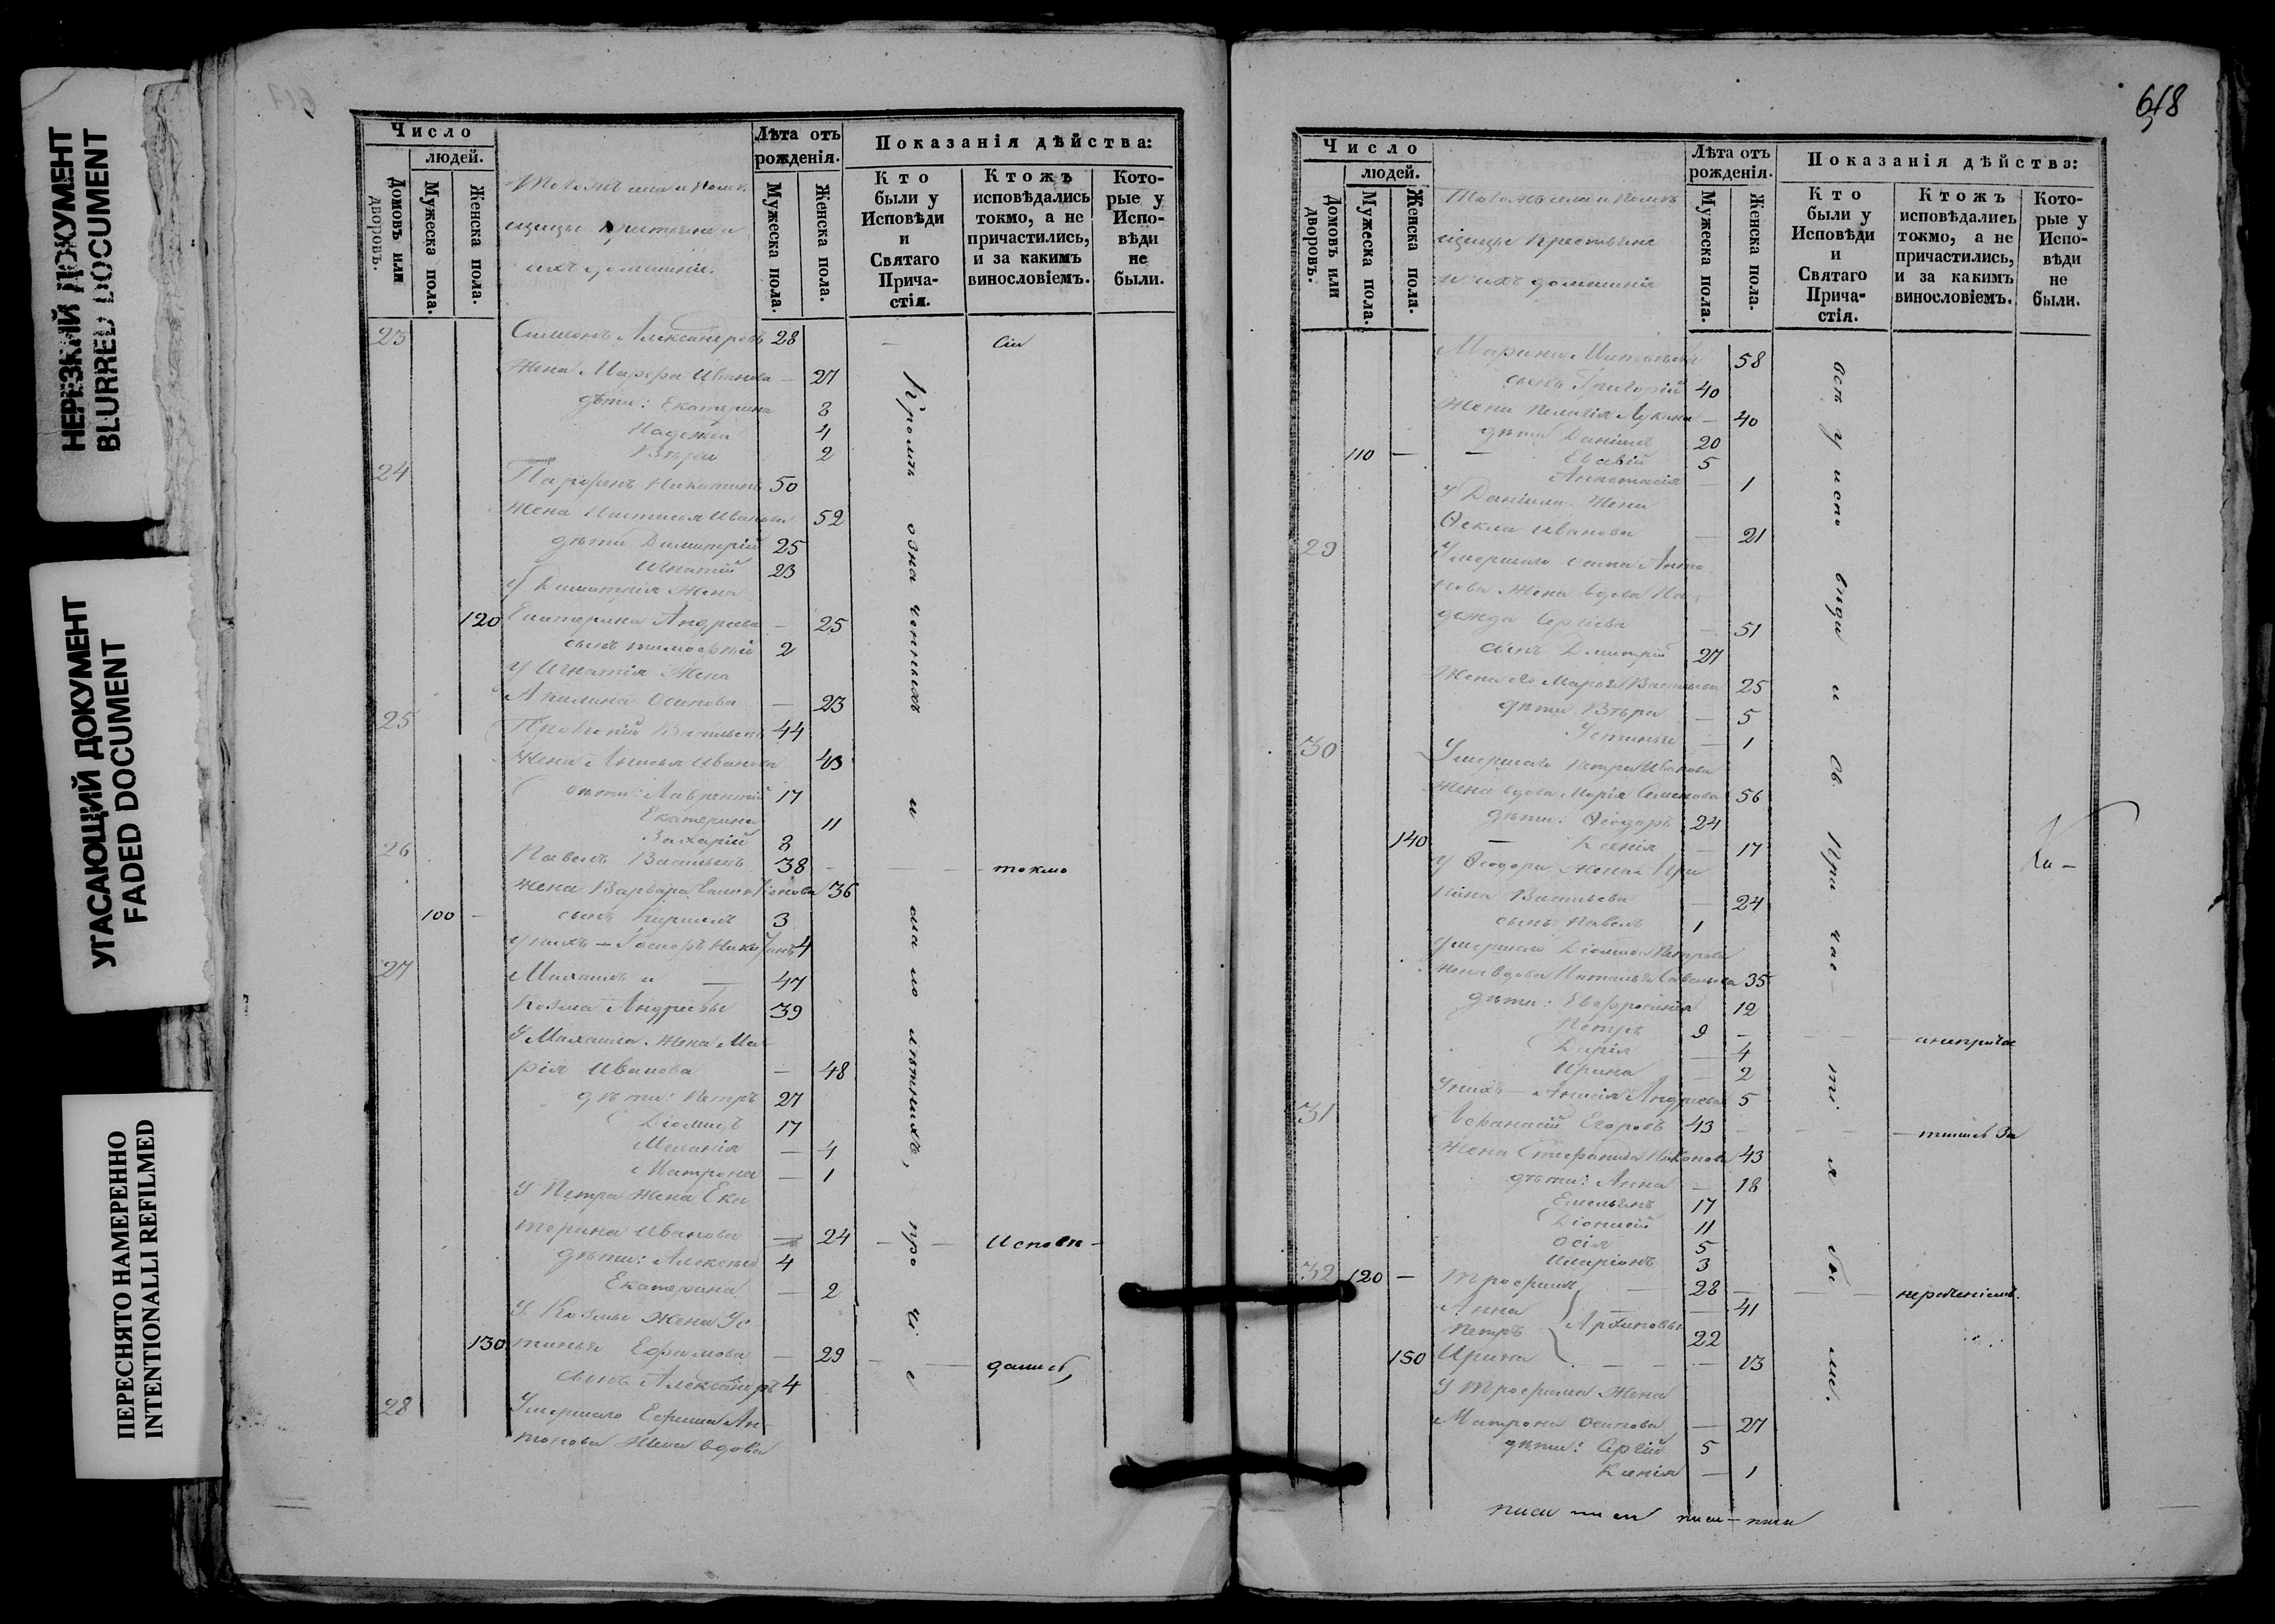 НЕРЕЗКИЙ ДОКУМЕНТ
BLURRED DOCUMENT
УГАСАЮЩИЙ ДОКУМЕНТ
FADED DOCUMENT
ПЕРЕСНЯТО НАМЕРЕННО
INTENTIONALLI REFILMED
Число
людей.
Домовъ или дворовъ.
Мужеска пола.
Женска пола.
Лѣта отъ рожденія.
Мужеска пола.
Женска пола.
Показанія дѣйства:
Кто были у Исповѣди и Святаго Прича-стія.
Ктожъ исповѣдались токмо, а не причастились, и за какимъ винословіемъ.
Кото-рые у Испо-вѣди не были.
Тогожъ села и помѣ
щицы крестьяне и
ихъ домашніе.
23 Симеонъ Александровъ 28 сіи
Жена Марфа Иванова 27
дѣти: Екатерина 8
Надежда 4
Вѣра 2
24 Парфенъ Никитинъ 50
Жена Настасья Иванова 52
дѣти Димитрій 25
Игнатій 23
У Димитрія Жена
120 Екатерина Андреева 25
сынъ Тимофей 2
У Игнатія Жена
Акилина Осипова 23
25 Прокопій Васильевъ 44
Жена Анисья Иванова 43
дѣти: Лаврентій 17
Екатерина 11
Захарій 8
26 Павелъ Васильевъ 38 токмо
Жена Варвара 36
100 сынъ Кириллъ 3
у нихъ 4
27 Михаилъ и 47
Козма Андреевы 39
У Михаила Жена Ма
рія Иванова 48
дѣти: Петръ 27
Діомидъ 17
Меланія 4
Матрона 1
У Петра Жена Ека
терина Иванова 24 исповѣ-
дѣти: Алексѣй 4
Екатерина 2
У Козмы Жена Ус
130 тинья Ефимова 29 дались,
сынъ Александръ 4
28 Умершаго Ефима Ан-
тонова Жена вдова
Кромѣ означенныхъ и малолѣтнихъ, прочіе
618
Число
людей.
Домовъ или дворовъ.
Мужеска пола.
Женска пола.
Лѣта отъ рожденія.
Мужеска пола.
Женска пола.
Показанія дѣйства:
Кто были у Исповѣди и Святаго Прича-стія.
Ктожъ исповѣдались токмо, а не причастились, и за какимъ винословіемъ.
Кото-рые у Испо-вѣди не были.
Тогожъ села и помѣ
щицы крестьяне
и ихъ домашніе
Марина 58
сынъ Григорій 40
Жена Пелагія Лукина 40
дѣти Даніилъ 20
110 5
Анастасія 1
У Даніила Жена
Ѳекла Иванова 21
29 Умершаго Анто
нова Жена вдова На-
дежда Сергіева 51
сынъ Димитрій 27
Жена его Марфа Васильева 25
дѣти Вѣра 5
Устинья 1
30 Умершаго Петра Иванова
Жена вдова Марія Семенова 56
дѣти: Ѳеодоръ 24
140 Ксенія 17
У Ѳеодора Жена Ири
Васильева 24
сынъ Павелъ 1
Умершаго Діомида Петрова
Жена вдова Наталья Савельева 35
дѣти: Евфросинія 12
Петръ 9 а неприча
Дарія 4
Ирина 2
У нихъ Анисія Андреева 5
31 Афанасій Егоровъ 43 тились за
Жена Стефанида 43
дѣти: Анна 18
Емельянъ 17
Діонисій 11
Осія 5
Иларіонъ 3
32 120 Трофимъ 28 нерѣченіемъ.
Анна 41
Петръ Архиповы 22
150 Ирина 13
У Трофима Жена
Матрона Осипова 27
дѣти: Сергій 5
Ксенія 1
всѣ у исповѣди и Св. Причастія были.